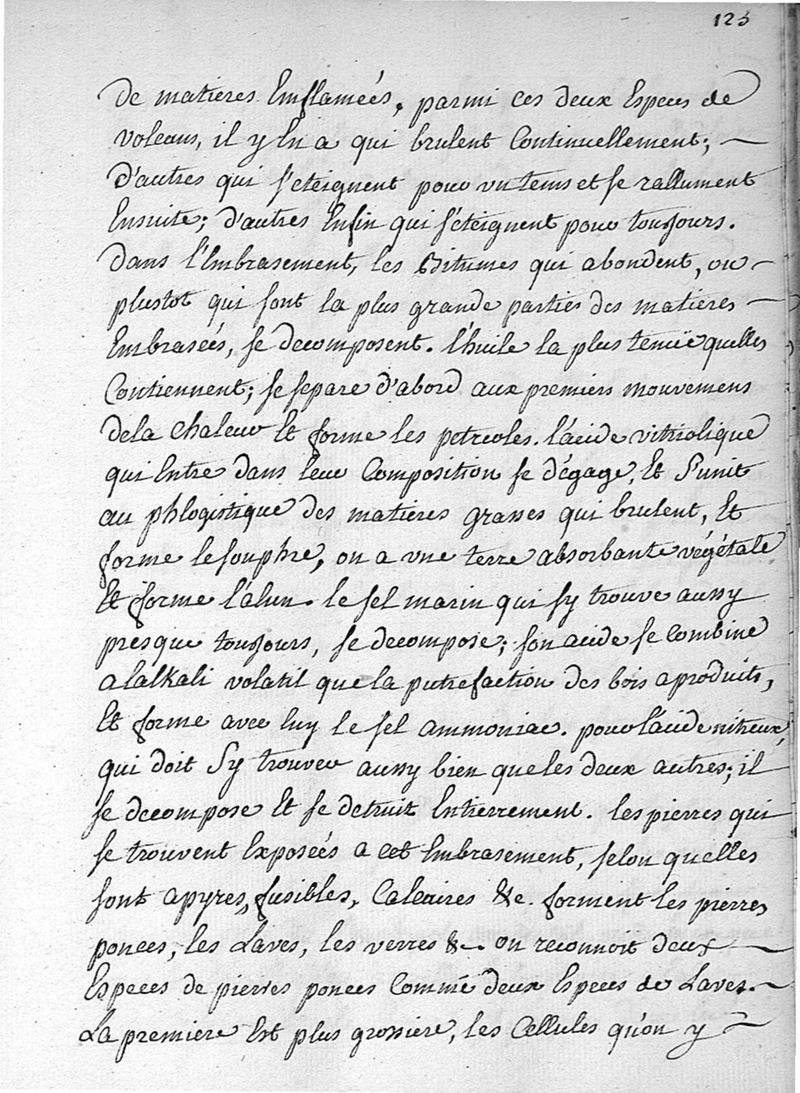 123
de matieres Emflameés, parmi ces deux Especes de
volcans, il y En a qui brulent Continuellement;
d'autres qui s'eteignent pour un tems et se rallument
Ensuite; d'autres Enfin qui s'éteignent pour toujours.
Dans l'Embrasement, les Bitumes qui abondent, ou
plustot qui font la plus grande parties des matieres
Embraseés, se decomposent. l'huile la plus tenuë quelles
Contiennent; se separe d'abord aux premiers mouvemens
dela chaleur Et forme les petreoles. l'acide vitriolique
qui Entre dans leur Composition se dégage, Et s'unit
au phlogistique des matieres grasses qui brulent, Et
forme le souphre, ou a une terre absorbante végétale
Et forme l'alun. le sel marin qui s'y trouve aussy
presque toujours, se decompose; son acide se Combine
a lalkali volatil que la putrefaction des bois a produits,
Et forme avec luy le sel ammoniac. pour l'acide nitreux,
qui doit s'y trouver aussy bien que les deux autres; il
se decompose Et se detruit Entierrement. les pierres qui
se trouvent Exposeés a cet Embrasement, selon quelles
sont apyres, fusibles, Calcaires &c. forment les pierres
ponces, les Laves, les verres &c. on reconnoit deux
Especes de pierres ponces Comme deux Especes de Laves.
La premiere Est plus grossiere, les Cellules qu'on y